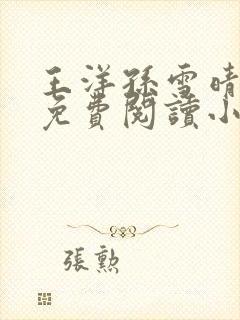 王洋孫雪晴
免費閱讀小
張勲